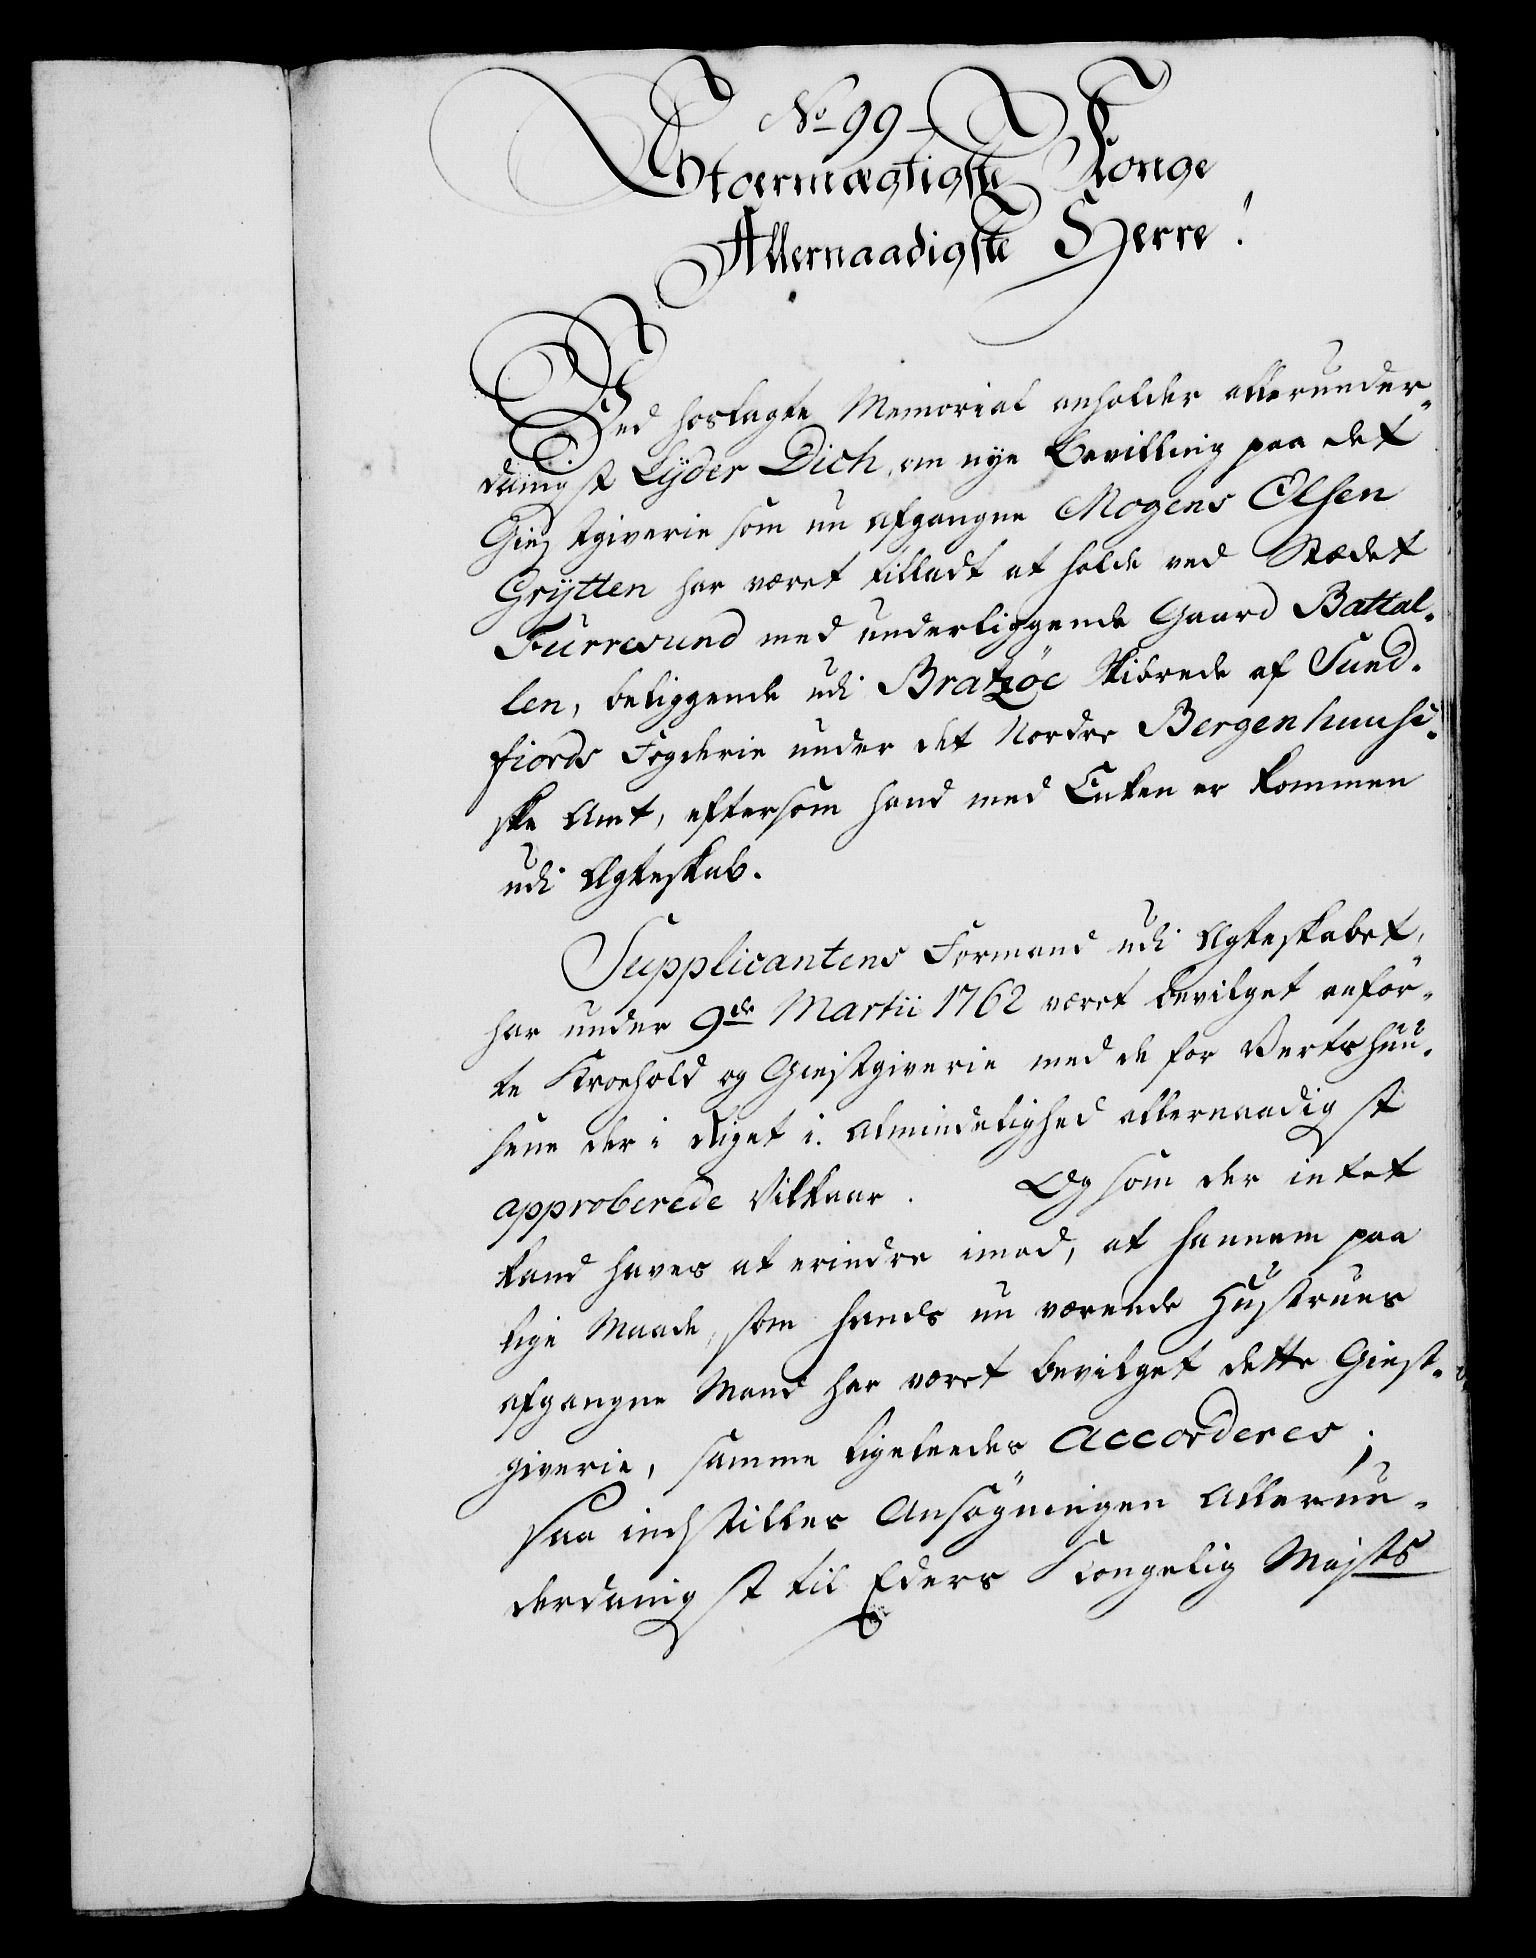 No 99
Stormægtigste Konge
Allernaadigste Herre!
Ved hoslagte Memorial anholder allerunder-
danigst Lyder Dich, om nye bevilling paa det
Giestgiverie som nu afgangne Mogens Olsen
Grytten har været tilladt at holde ved Stædet
Furresund med underliggende Gaard Battal-
len, beliggende udi Bratzöe Skibrede af Sund-
fiords Fogderie under det Nordre Bergenhuusi-
ske Amt, eftersom hand med Enken er kommen
udi Ægteskab.
Supplicantens Formand udi Ægteskabet,
har under 9de Martii 1762 været bevilget anför-
te Kroehold og Giestgiverie med de for Vertshuu-
sene der i Riget i Almindelighed allernaadigst
approberede Vilkaar. Og som der intet
kand haves at erindre imod, at hannem paa
lige Maade, som hands nu værende Hustrues
afgangne Mand har været bevilget dette Giest-
giverie, samme ligeleedes accorderes;
Saa indstilles Ansögningen allerun-
derdanigst til Eders Kongelig Majsts